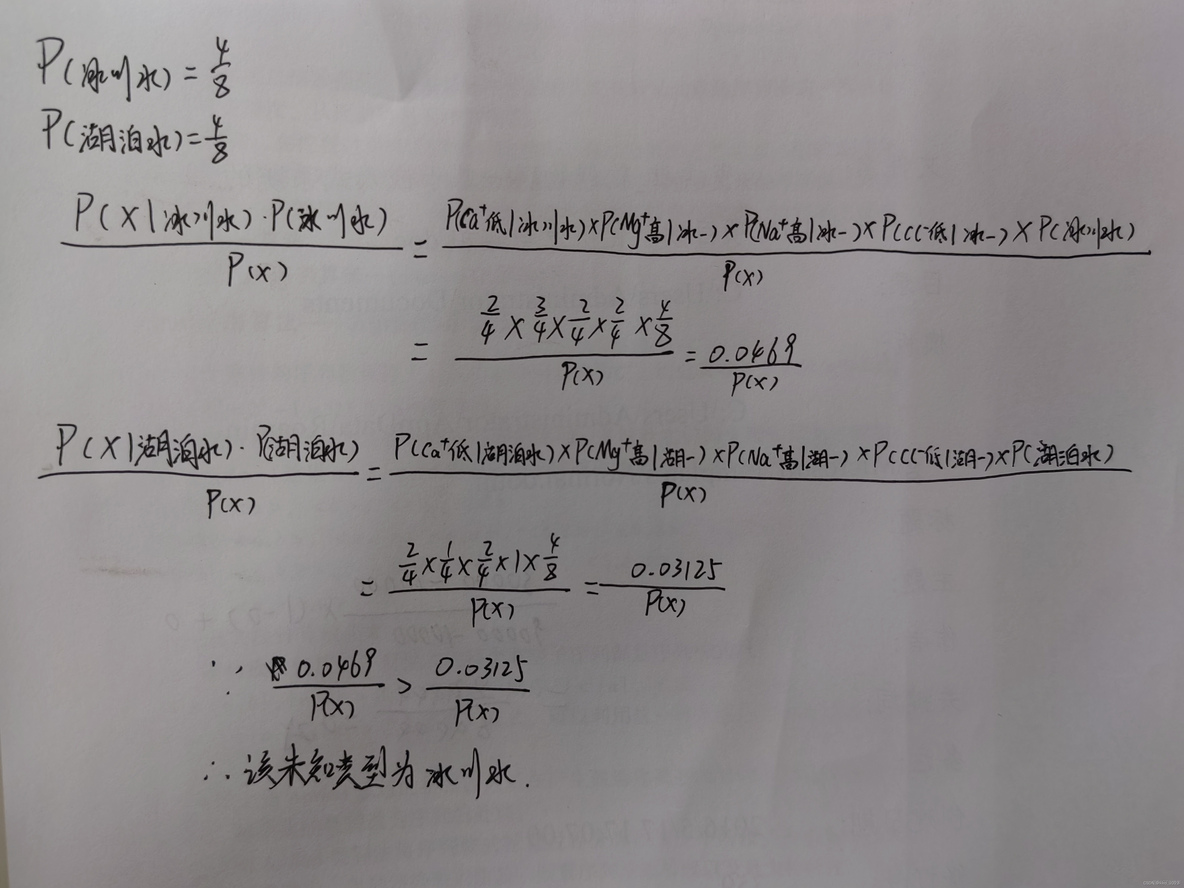 P(冰川水) = 4/8
P(湖泊水) = 4/8
P(X|冰川水)·P(冰川水) / P(X) = P(Ca⁺低|冰川水)×P(Mg⁺高|冰-)×P(Na⁺高|冰-)×P(Cl⁻低|冰-)×P(冰川水) / P(X)
= 2/4 × 3/4 × 2/4 × 2/4 × 4/8 / P(X) = 0.0469 / P(X)
P(X|湖泊水)·P(湖泊水) / P(X) = P(Ca⁺低|湖泊水)×P(Mg⁺高|湖-)×P(Na⁺高|湖-)×P(Cl⁻低|湖-)×P(湖泊水) / P(X)
= 2/4 × 1/4 × 2/4 × 1 × 4/8 / P(X) = 0.03125 / P(X)
∵ 0.0469 / P(X) > 0.03125 / P(X)
∴ 该未知类型为冰川水.